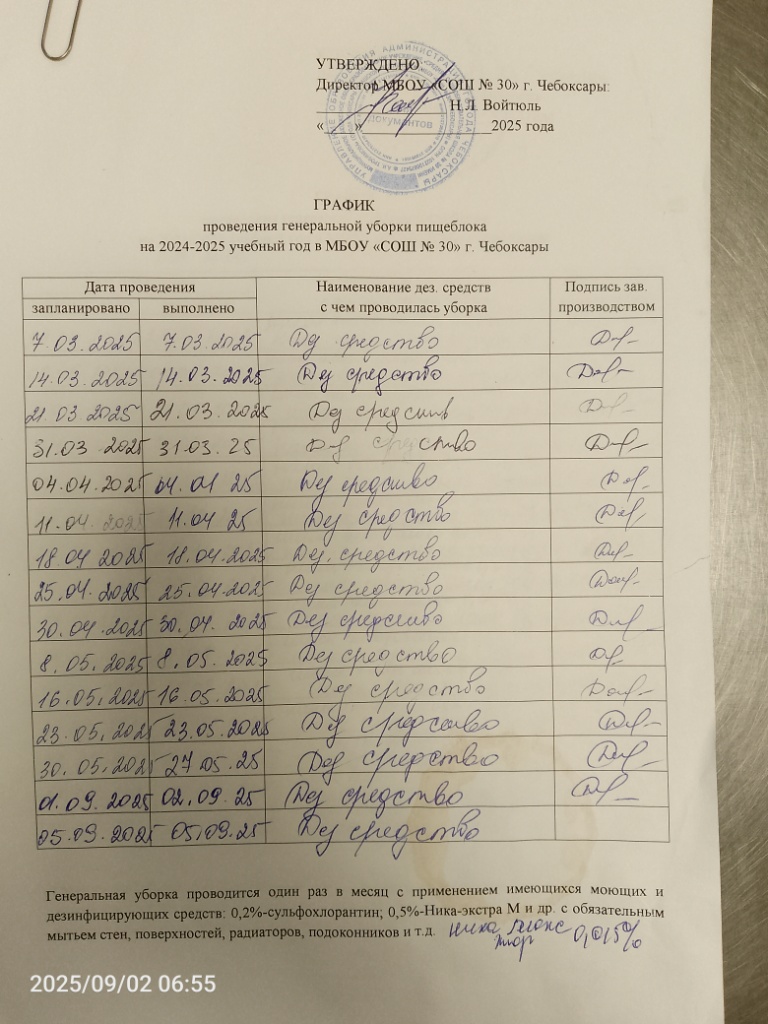 УТВЕРЖДЕНО:
Директор МБОУ «СОШ № 30» г. Чебоксары:
Н.Л. Войтюль
« » 2025 года
документов
ГРАФИК
проведения генеральной уборки пищеблока
на 2024-2025 учебный год в МБОУ «СОШ № 30» г. Чебоксары
Дата проведения Наименование дез. средств с чем проводилась уборка Подпись зав. производством
запланировано выполнено
7.03.2025 7.03.2025 Дез средство
14.03.2025 14.03.2025 Дез средство
21.03.2025 21.03.2025 Дез средств
31.03.2025 31.03.25 Дез средство
04.04.2025 04.01 25 Дез средство
11.04.2025 11.04 25 Дез средство
18.04 2025 18.04.2025 Дез. средство
25.04.2025 25.04.2025 Дез средство
30.04.2025 30.04.2025 Дез средство
8.05.2025 8.05.2025 Дез средство
16.05.2025 16.05.2025 Дез средство
23.05.2025 23.05.2025 Дез средство
30.05.2025 27 05.25 Дез средство
01.09.2025 02.09.25 Дез средство
05.09.2025 05.09.25 Дез средство
Генеральная уборка проводится один раз в месяц с применением имеющихся моющих и
дезинфицирующих средств: 0,2%-сульфохлорантин; 0,5%-Ника-экстра М и др. с обязательным
мытьем стен, поверхностей, радиаторов, подоконников и т.д. Ника 0,015%
2025/09/02 06:55